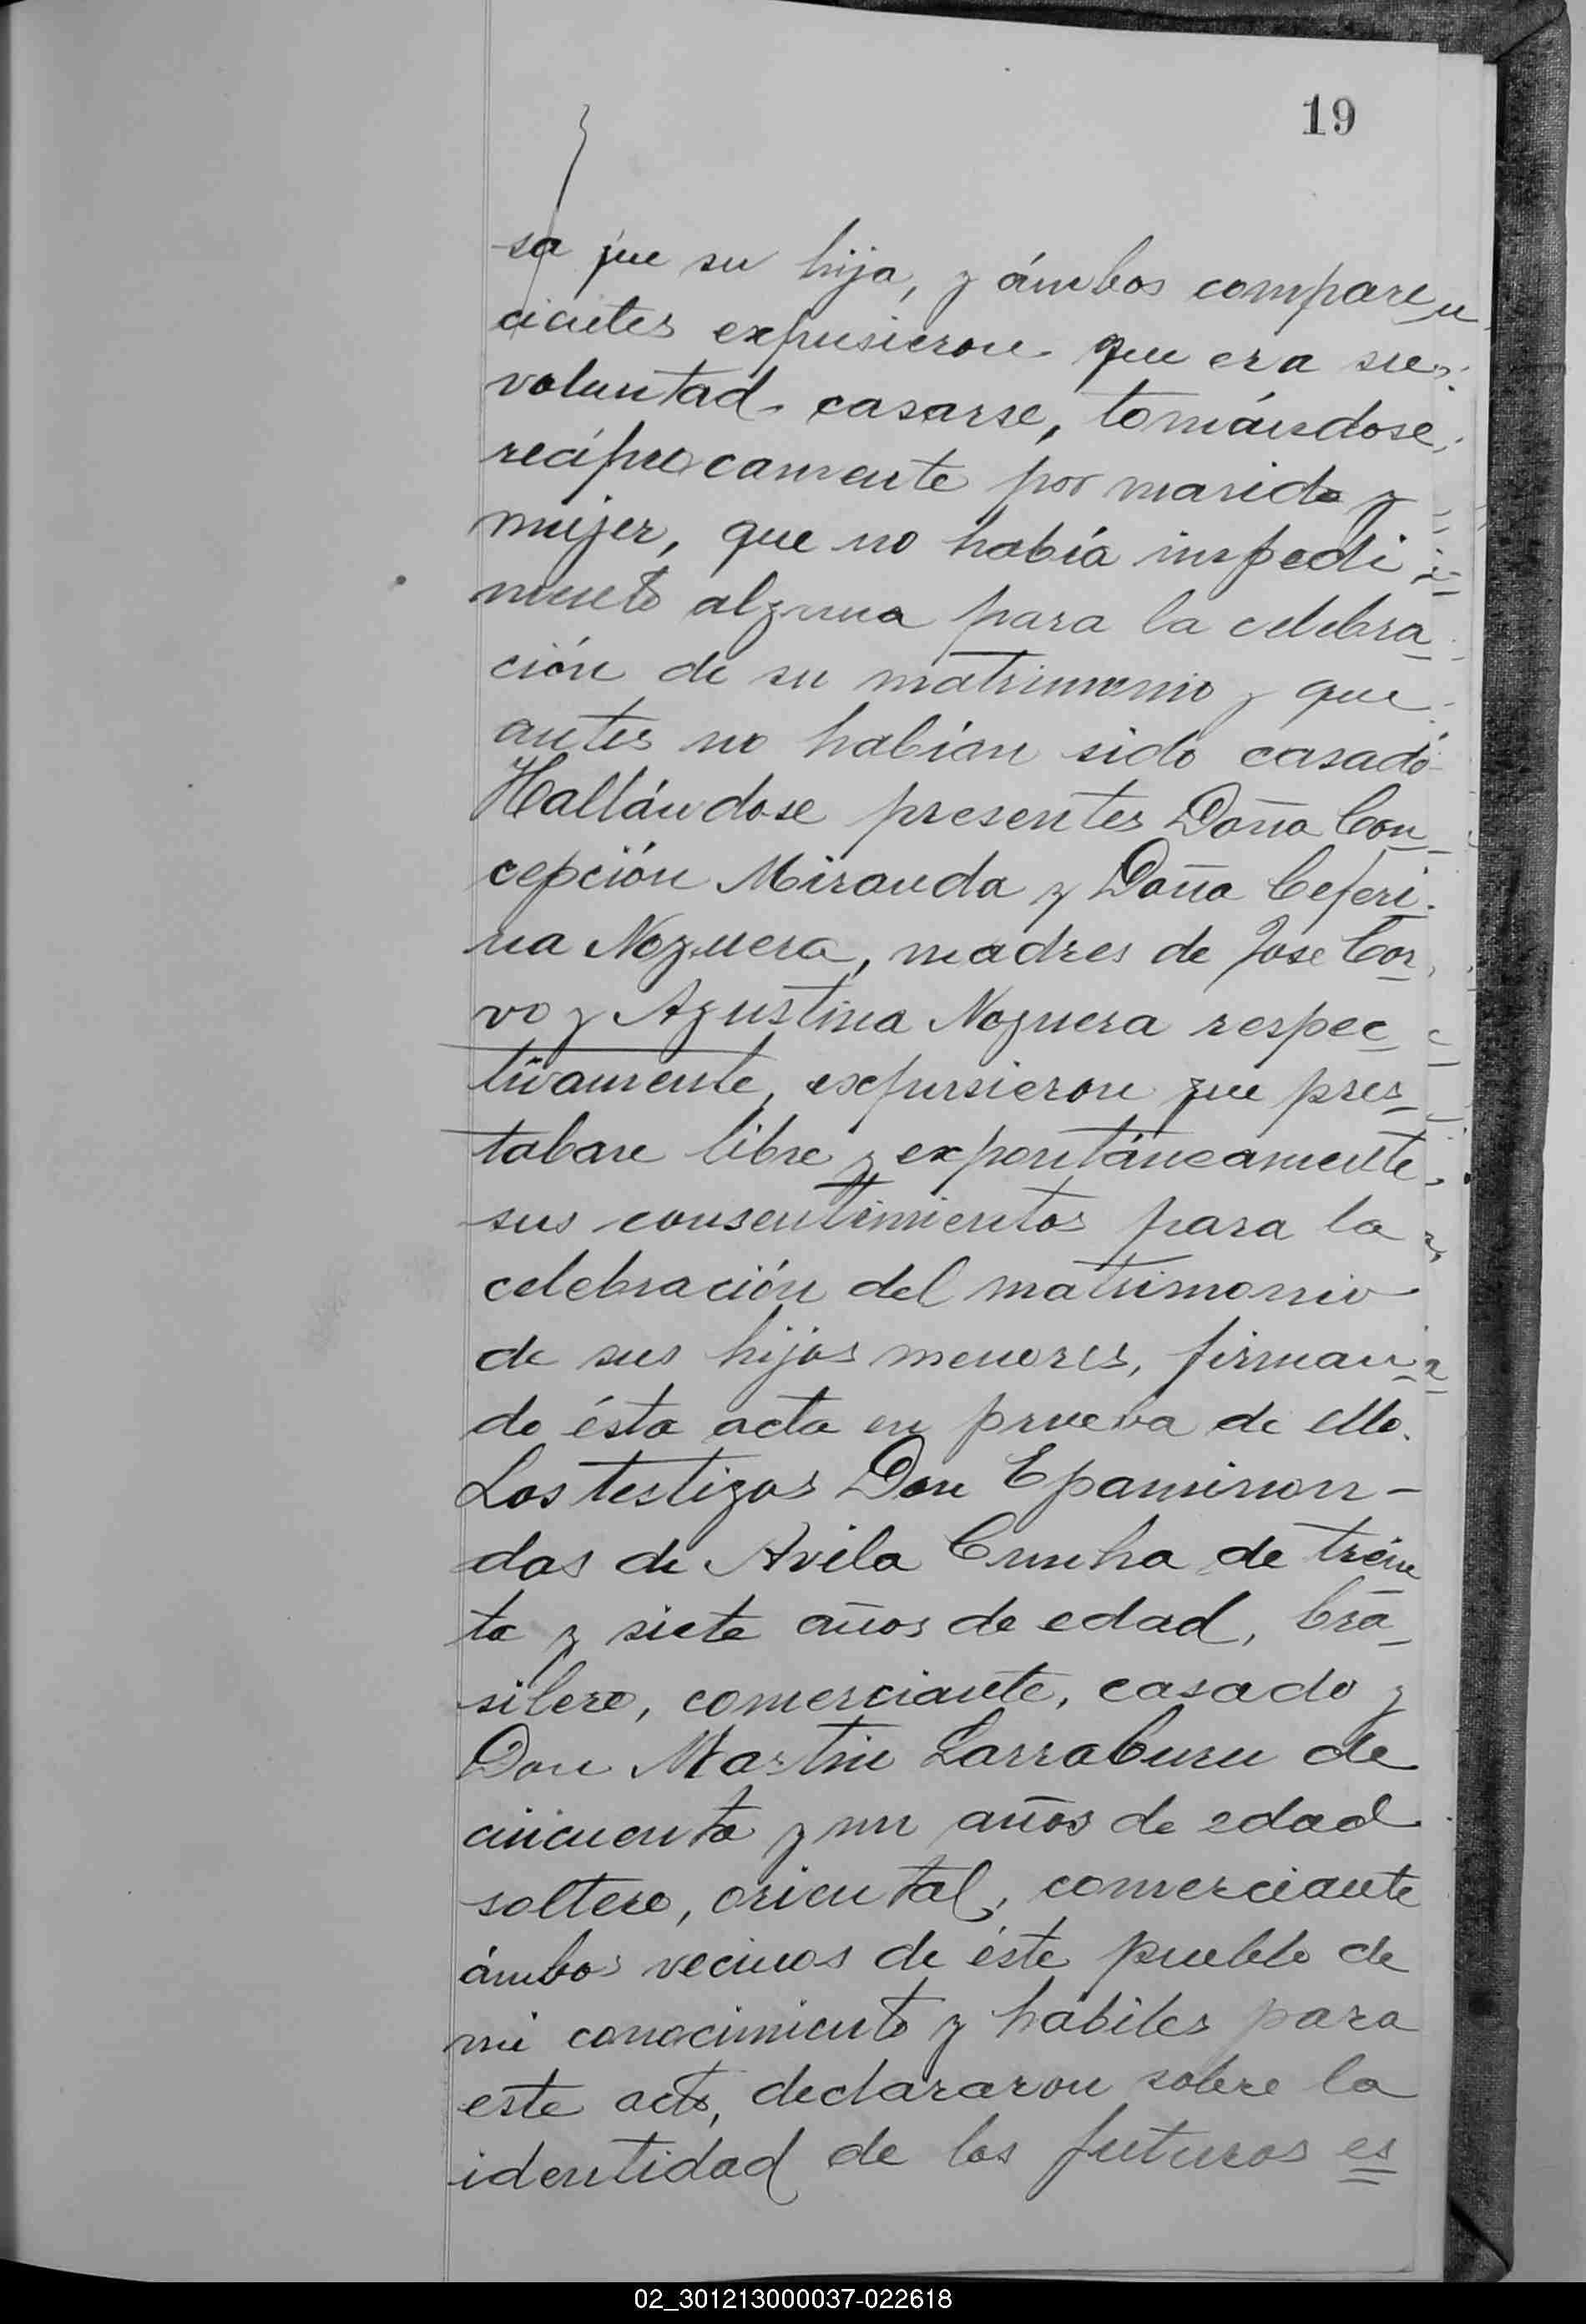 19
sa que su hija, y ámbos comparen
cientes expusieron que era su
voluntad casarse, tomándose
recíprocamente por marido y
mujer, que no había impedi
mento alguno para la celebra
ción de su matrimonio y que
antes no habían sido casado
Hallándose presentes Doña Con
cepción Miranda y Doña Ceferi
na Noguera, madres de Jose Cor
vo y Agustina Noguera respec
tivamente, expusieron que pres
taban libre y expontáneamente
sus consentimientos para la
celebración del matrimonio
de sus hijos menores, firman
do ésta acta en prueba de ello.
Los testigos Don Epaminon-
das de Avila Cunha de trein
ta y siete años de edad, bra
silero, comerciante, casado y
Don Martin Larraburu de
cincuenta y un años de edad
soltero, oriental, comerciante
ámbos vecinos de éste pueblo de
mi conocimiento y hábiles para
este acto, declararon sobre la
identidad de los futuros es
02_301213000037-022618